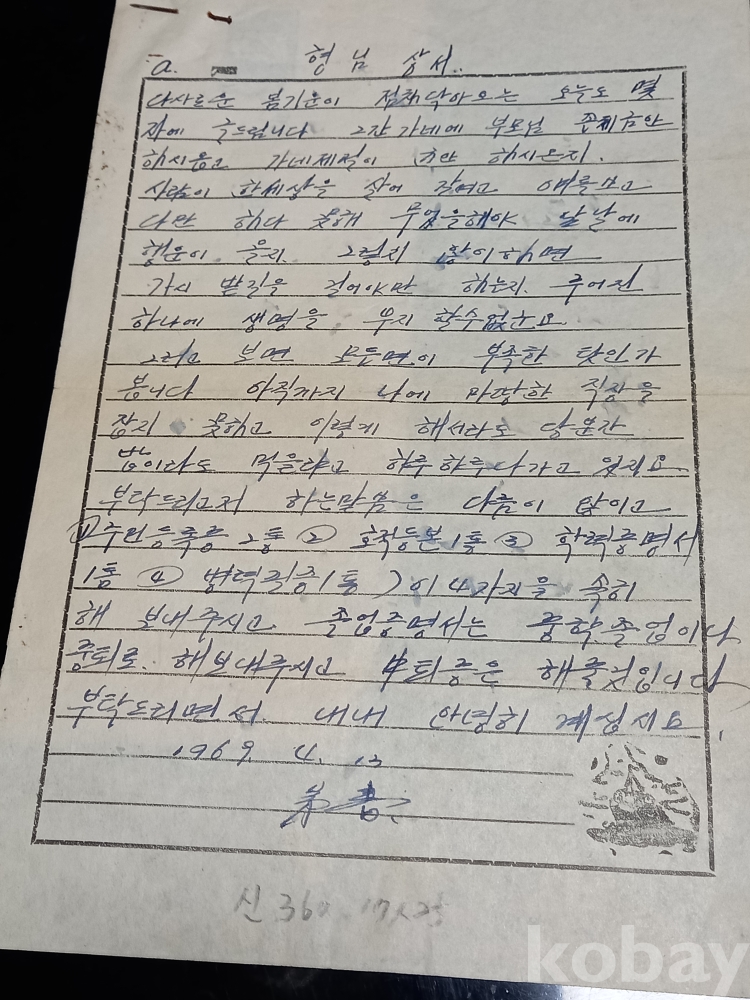 a. 형님 상서..
다사로운 봄기운이 점차 닥아오는 오늘도 몇
자에 글드립니다 그간 가네에 부모님 존체금안
하시옵고 가네제절이 하시온지.
사람이 한세상을 살어 각어고 애를보고
다만 하다 못해 무엇을해야 날날에
행운이 올지. 그렇치 않이하면
가시 밭길을 걸어야만 하는지. 주어진
하나에 생명을 부지 할수없군요.
그리고 보면 모든면이 부족한 탓인가
봅니다 아직까지 나에 마땅한 직장을
잡지 못하고 이렇게 해서라도 당분간
밥이라도 먹을라고 하루하루 나가고 있지요
부탁드리고저 하는말씀은 다름이 않이고
① 주민등록증 2통 ② 호적등본 1통 ③ 학력증명서
1통 ④ 병력필증 1통 ) 이 4가지을 속히
해 보내주시고 졸업증명서는 중학졸업이나
중퇴로. 해보내주시고 中퇴증은 해줄것입니다
부탁드리면서. 내내 안녕히 계십시요.
1969. 4. 13
弟 書
신 360
kobay